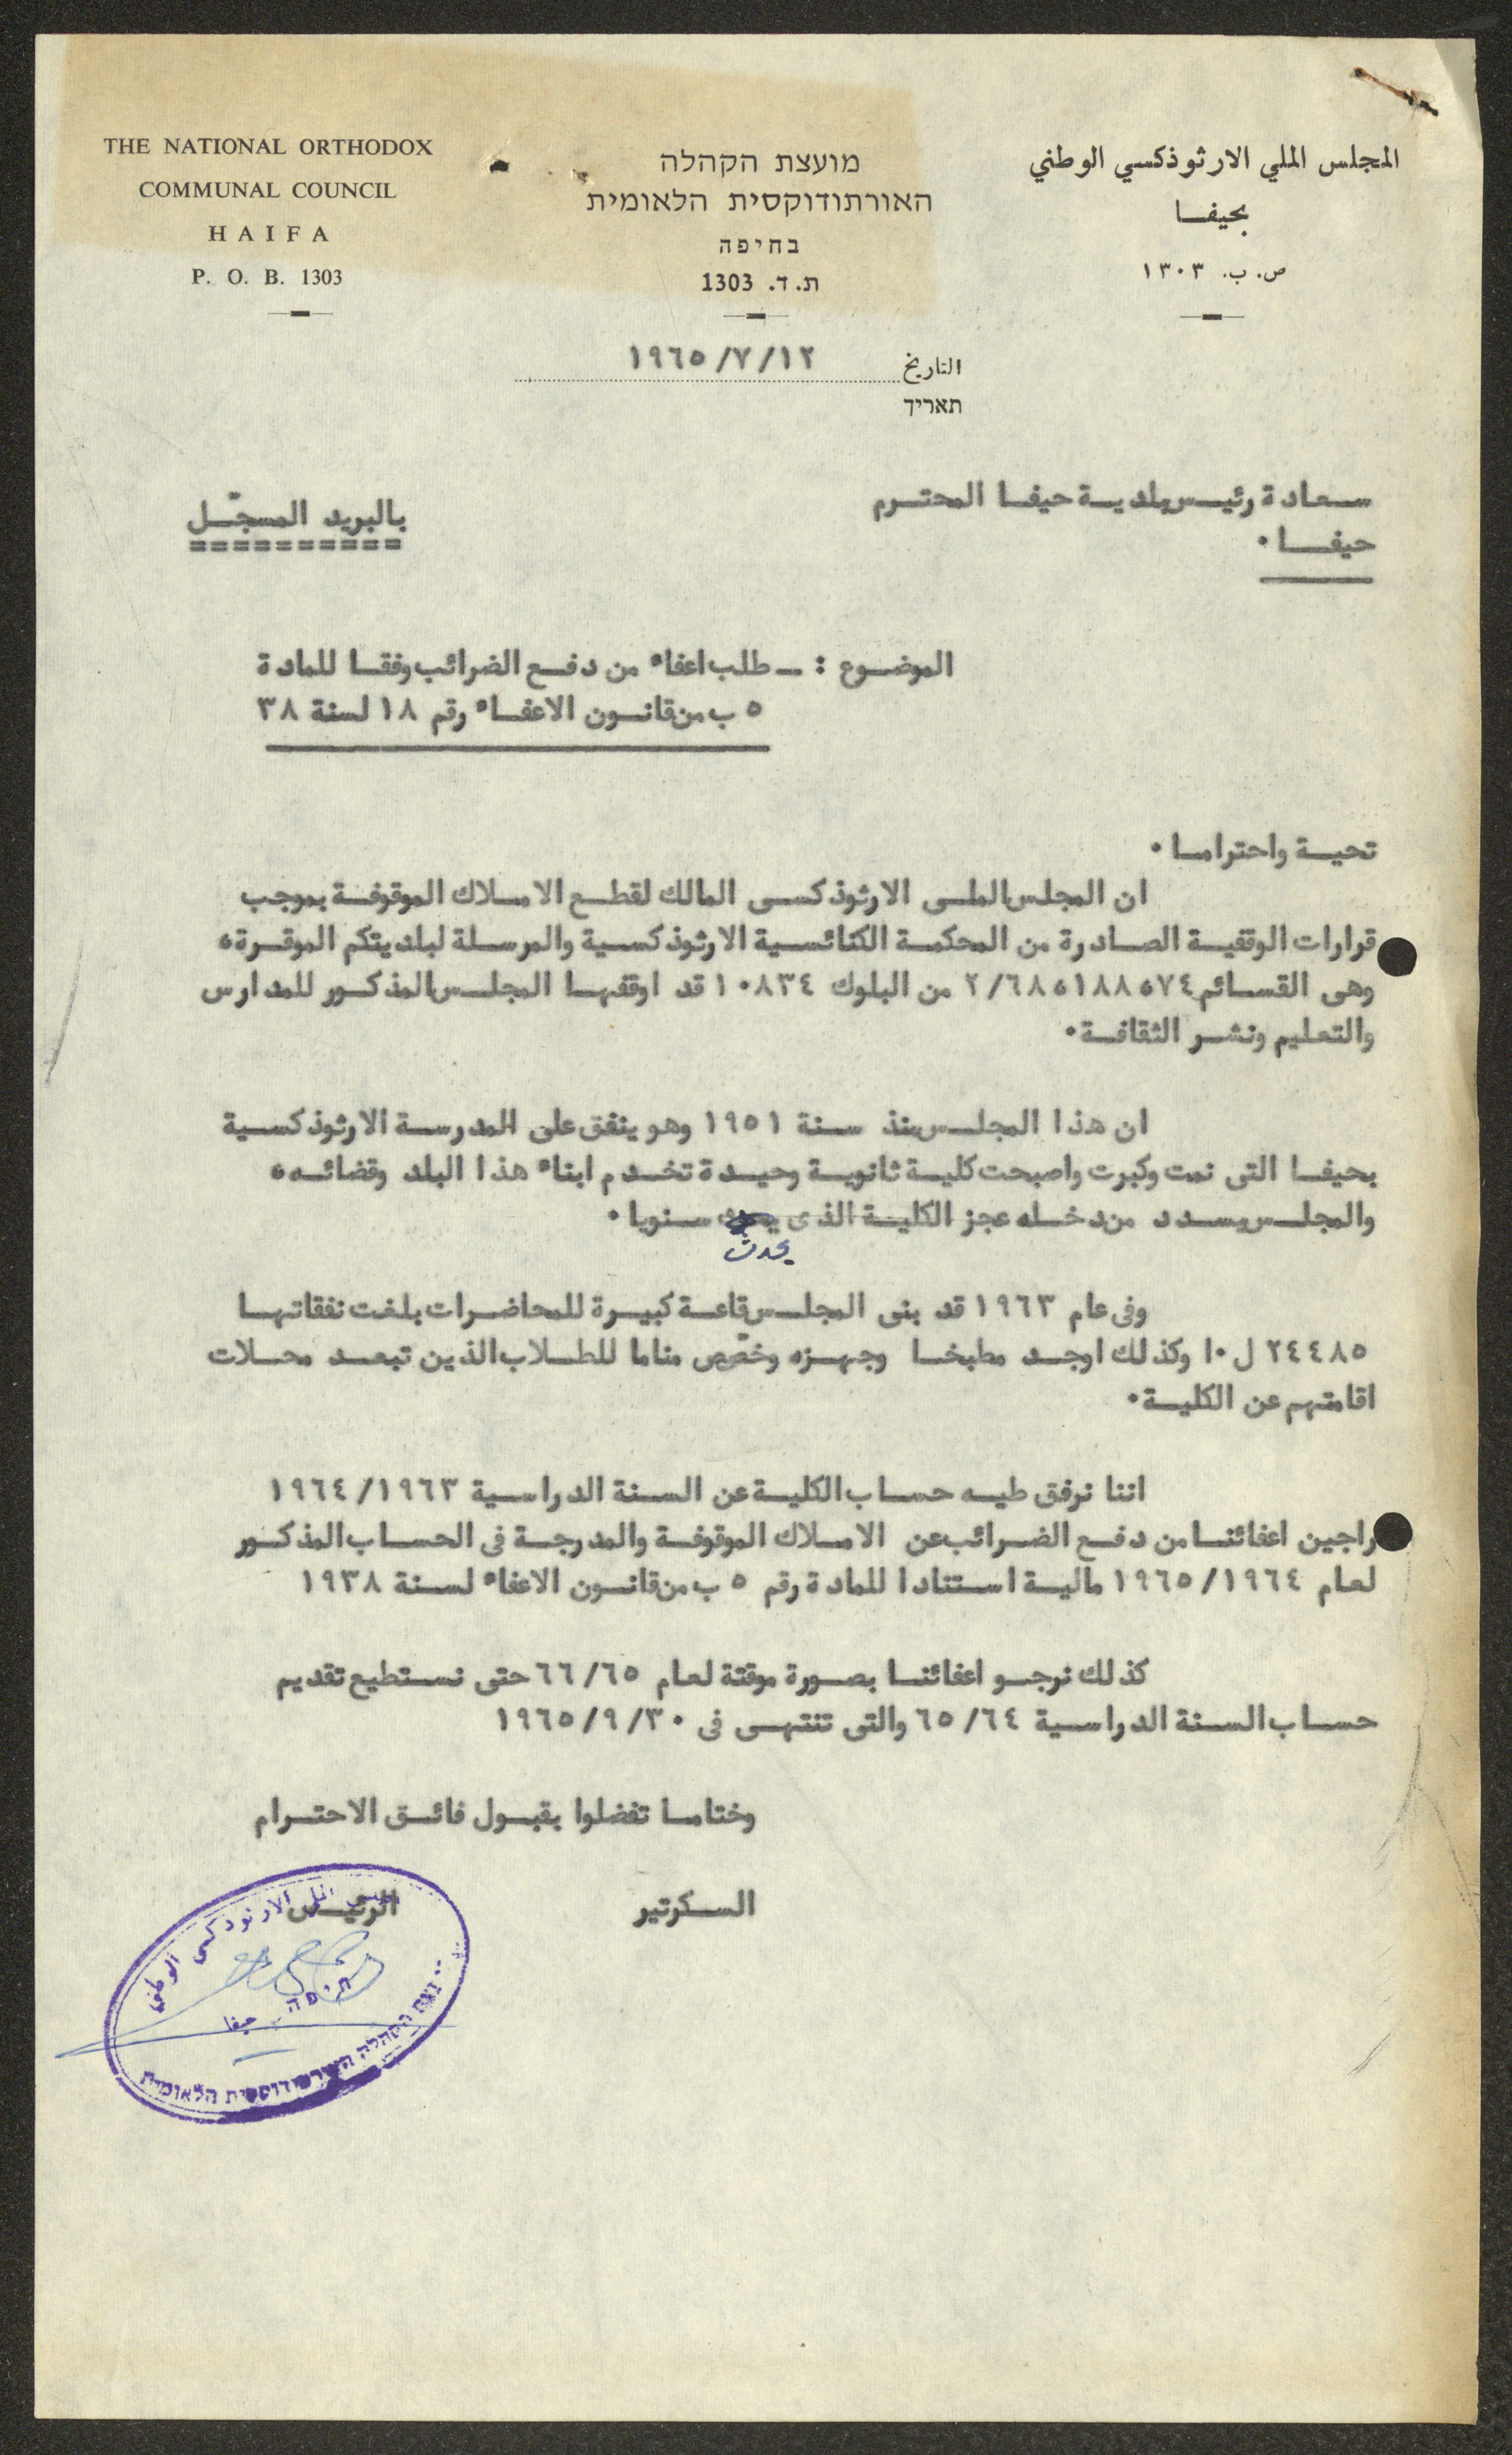 THE NATIONAL ORTHODOX
COMMUNAL COUNCIL
HAIFA
P. O. B. 1303
מועצת הקהלה
האורתודוקסית הלאומית
בחיפה
ת. ד. 1303
المجلس الملي الارثوذكسي الوطني
بحيفا
ص. ب. ١٣٠٣
التاريخ ١٩٦٥/٧/١٢
תאריך
سعادة رئيس بلدية حيفا المحترم
حيفا ٠
بالبريد المسجّل
==========
الموضوع : ـ طلب اعفاء من دفع الضرائب وفقا للمادة
٥ ب من قانون الاعفاء رقم ١٨ لسنة ٣٨
تحية واحتراما ٠
ان المجلس الملى الارثوذكسى المالك لقطع الاملاك الموقوفة بموجب
قرارات الوقفية الصادرة من المحكمة الكنائسية الارثوذكسية والمرسلة لبلديتكم الموقرة،
وهى القسائم ٧٤، ١٨٨، ٢/٦٨ من البلوك ١٠٨٣٤ قد اوقفها المجلس المذكور للمدارس
والتعليم ونشر الثقافة ٠
ان هذا المجلس منذ سنة ١٩٥١ وهو ينفق على المدرسة الارثوذكسية
بحيفا التى نمت وكبرت واصبحت كلية ثانوية وحيدة تخدم ابناء هذا البلد وقضائه،
والمجلس يسدد من دخله عجز الكلية الذى سنويا ٠
يحدث
وفى عام ١٩٦٣ قد بنى المجلس قاعة كبيرة للمحاضرات بلغت نفقاتها
٢٤٤٨٥ ل ٠ا وكذلك اوجد مطبخا وجهزه وخصّص مناما للطلاب الذين تبعد محلات
اقامتهم عن الكلية ٠
اننا نرفق طيه حساب الكلية عن السنة الدراسية ١٩٦٤/١٩٦٣
راجين اعفائنا من دفع الضرائب عن الاملاك الموقوفة والمدرجة فى الحساب المذكور
لعام ١٩٦٥/١٩٦٤ مالية استنادا للمادة رقم ٥ ب من قانون الاعفاء لسنة ١٩٣٨
كذلك نرجو اعفائنا بصورة موقتة لعام ٦٦/٦٥ حتى نستطيع تقديم
حساب السنة الدراسية ٦٥/٦٤ والتى تنتهى فى ١٩٦٥/٩/٣٠
وختاما تفضلوا بقبول فائق الاحترام
السكرتير
الرئيس
الملي الارثوذكسي الوطني
חיפה حيفا
הקהלה האורתודוקסית הלאומית